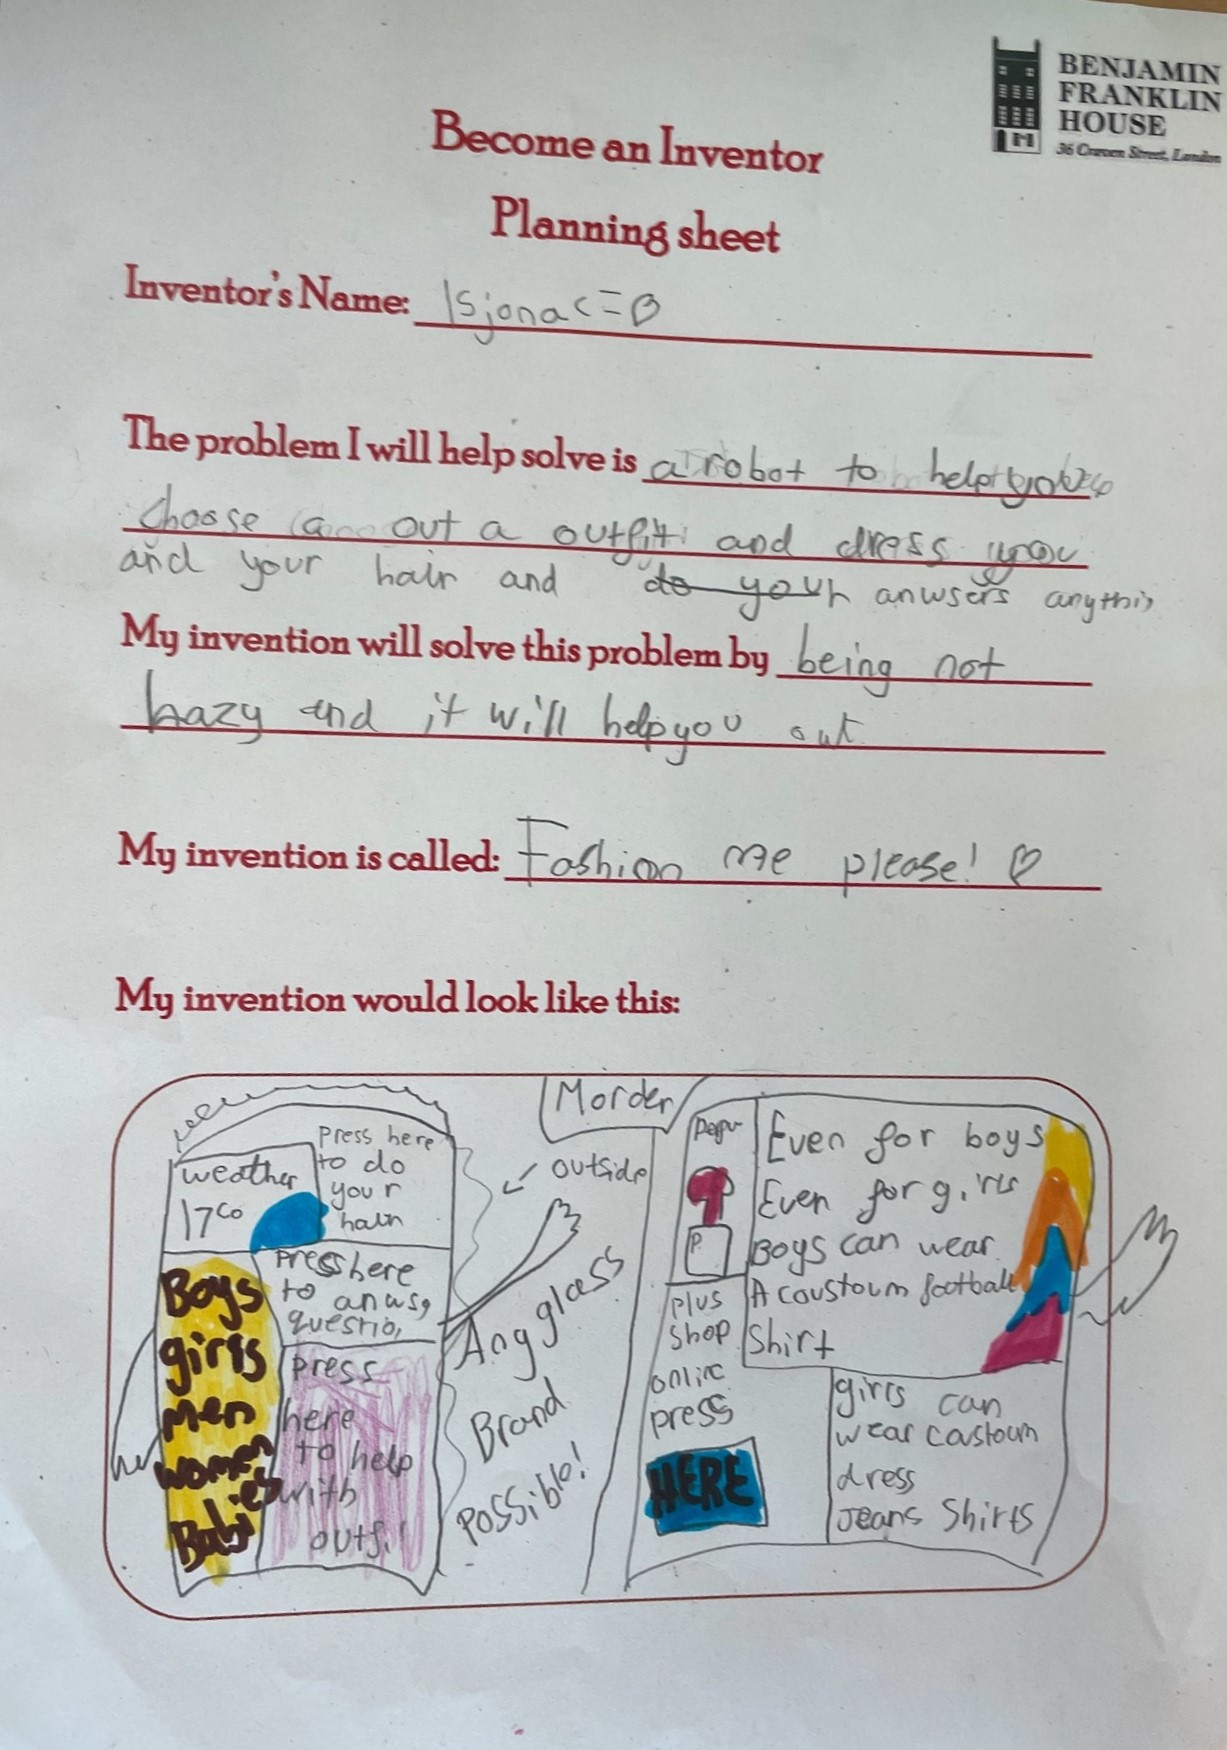 BENJAMIN
FRANKLIN
HOUSE
36 Craven Street, London
Become an Inventor
Planning sheet
Inventor's Name: Isjona
The problem I will help solve is a robot to help you
choose out a outfit and dress you
and your hair and do your anwsers anythin
My invention will solve this problem by being not
hazy and it will help you out
My invention is called: Fashion me please!
My invention would look like this:
Morder
weather
17co
press here
to do
your
hair
press here
to anwsq
questio
Boys
girls
Men
women
Babies
press
here
to help
with
outfi
outside
Any glass
Brand
Possible!
P
plus
shop
online
press
HERE
Even for boys
Even for girls
Boys can wear
A coustoum football
Shirt
girls can
wear coustoum
dress
Jeans Shirts